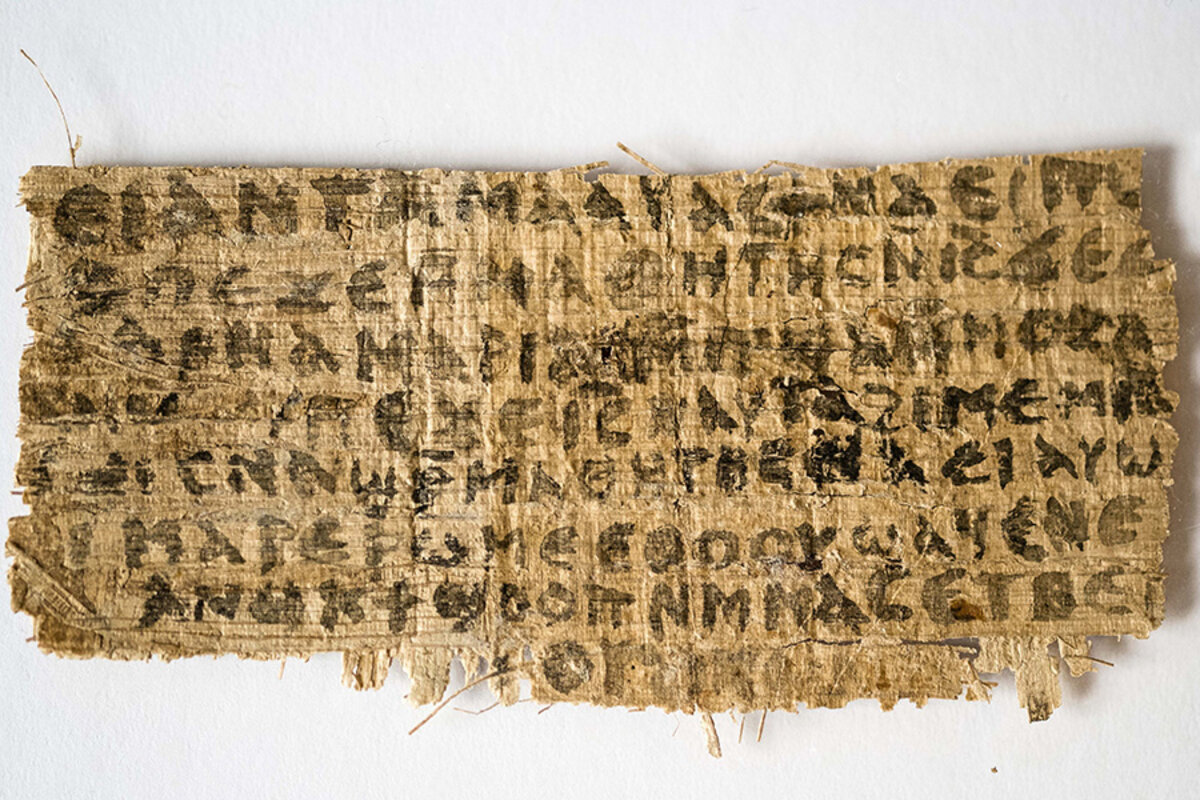 ⲉⲓ ⲁⲛ ⲧⲁⲙⲁⲁⲩ ⲁⲥϯ ⲛⲁⲉⲓ ⲡ
ⲡⲉϫⲉ ⲙⲙⲁⲑⲏⲧⲏⲥ ⲛⲓ̅ⲥ̅ ϫⲉ ⲥ
ⲁⲣⲛⲁ ⲙⲁⲣⲓⲁⲙ ⲙⲡϣⲁ ⲙⲙⲟⲥ ⲁ
ⲡⲉϫⲉ ⲓ̅ⲥ̅ ⲛⲁⲩ ⲧⲁϩⲓⲙⲉ ⲙⲛ
ⲥⲛⲁϣⲣ̅ⲙⲁⲑⲏⲧⲏⲥ ⲛⲁⲉⲓ ⲁⲩⲱ
ⲙⲁⲣⲉⲣⲱⲙⲉ ⲉⲑⲟⲟⲩ ϣⲁϥⲉ ⲛⲉ
ⲁⲛⲟⲕ ϯϣⲟⲟⲡ ⲛⲙⲙⲁⲥ ⲉⲧⲃⲉ